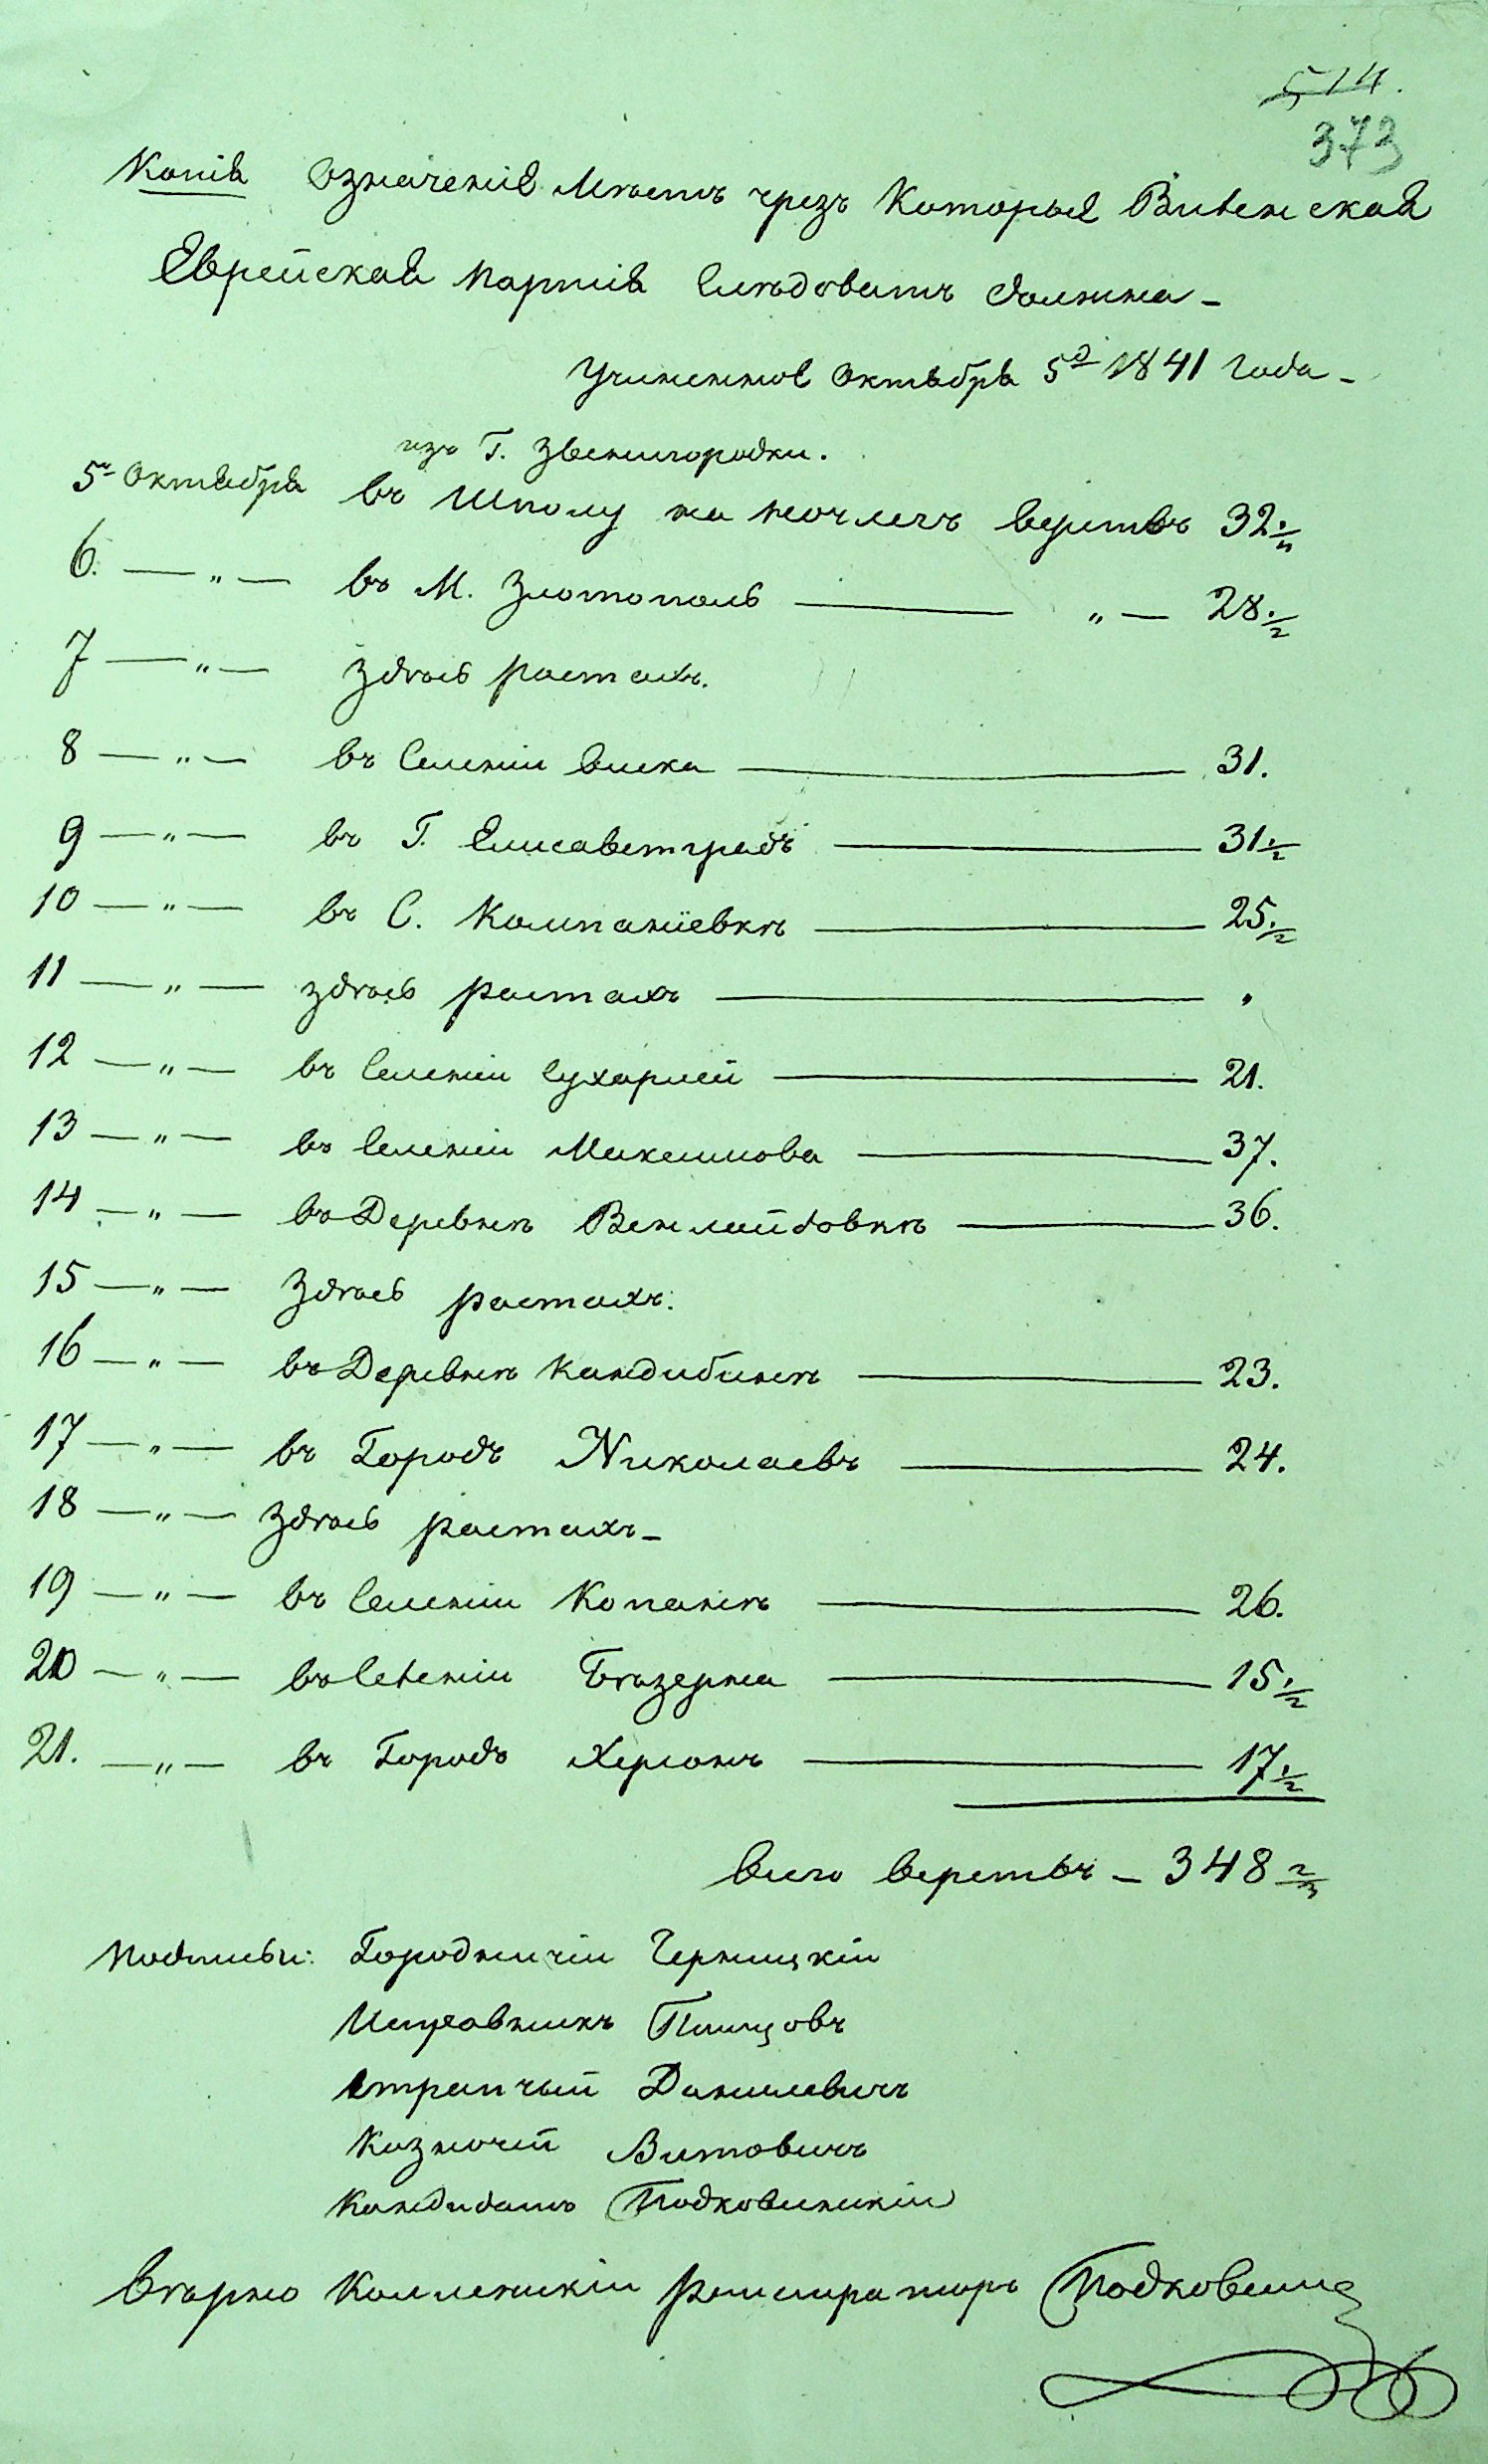 514.
373
Копія Означеніе Мѣстъ чрезъ Которые Виленская
Еврейская партія Слѣдовать должна –
Учиненное Октября 5го 1841 года –
изъ Г. Звенигородки.
5го Октября въ Шполу на ночлегъ верствъ 32 1/4
6. — „ — въ М. Злотополь — „ — 28 1/2
7 — „ — Здѣсь растахъ.
8 — „ — въ Селеніи Виска — 31.
9 — „ — въ Г. Елисаветградъ — 31 1/2
10 — „ — въ С. Компаніевкѣ — 25 1/2
11 — „ — здѣсь растахъ — „
12 — „ — въ Селеніи Сухарлей — 21.
13 — „ — въ Селеніи Микешнова — 37.
14 — „ — въ Деревнѣ Венлайдовкѣ — 36.
15 — „ — Здѣсь растахъ.
16 — „ — въ Деревнѣ Кандибинѣ — 23.
17 — „ — въ Городъ Николаевъ — 24.
18 — „ — Здѣсь растахъ –
19 — „ — въ Селеніи Копанѣ — 26.
20 — „ — въ Селеніи Бѣлзерка — 15 1/2
21. — „ — въ Городъ Херсонъ — 17 1/2
Всего верствъ – 348 2/3
Подписы: Городничій Черницкій
Исправникъ
Стряпчый Данилевичъ
Казначей Витовичъ
Кандидатъ Подковинскій
Вѣрно Коллежскій регистраторъ